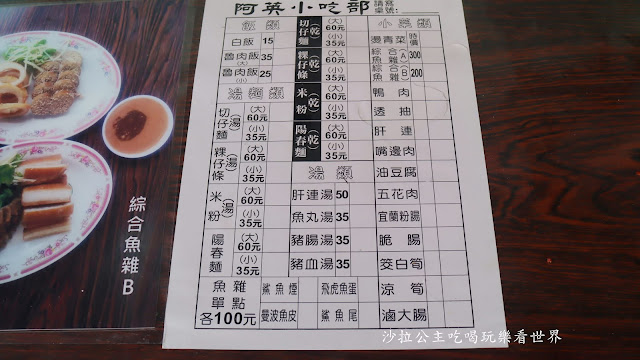 阿英小吃部
請寫桌號:
飯類
白飯 15
魯肉飯(大) 35
魯肉飯(小) 25
湯麵類
切仔麵(湯) (大)60元 (小)35元
粿仔條(湯) (大)60元 (小)35元
米粉(湯) (大)60元 (小)35元
陽春麵 (大)60元 (小)35元
魚雜單點各100元
鯊魚煙
飛虎魚蛋
曼波魚皮
鯊魚尾
切仔麵(乾) (大)60元 (小)35元
粿仔條(乾) (大)60元 (小)35元
米粉(乾) (大)60元 (小)35元
陽春麵(乾) (大)60元 (小)35元
湯類
肝連湯 50
魚丸湯 35
豬腸湯 35
豬血湯 35
小菜類
燙青菜 時價
綜合魚雜(A) 300
綜合魚雜(B) 200
鴨肉
透抽
肝連
嘴邊肉
油豆腐
五花肉
宜蘭粉腸
脆腸
筊白筍
涼筍
滷大腸
綜合魚雜B
沙拉公主吃喝玩樂看世界